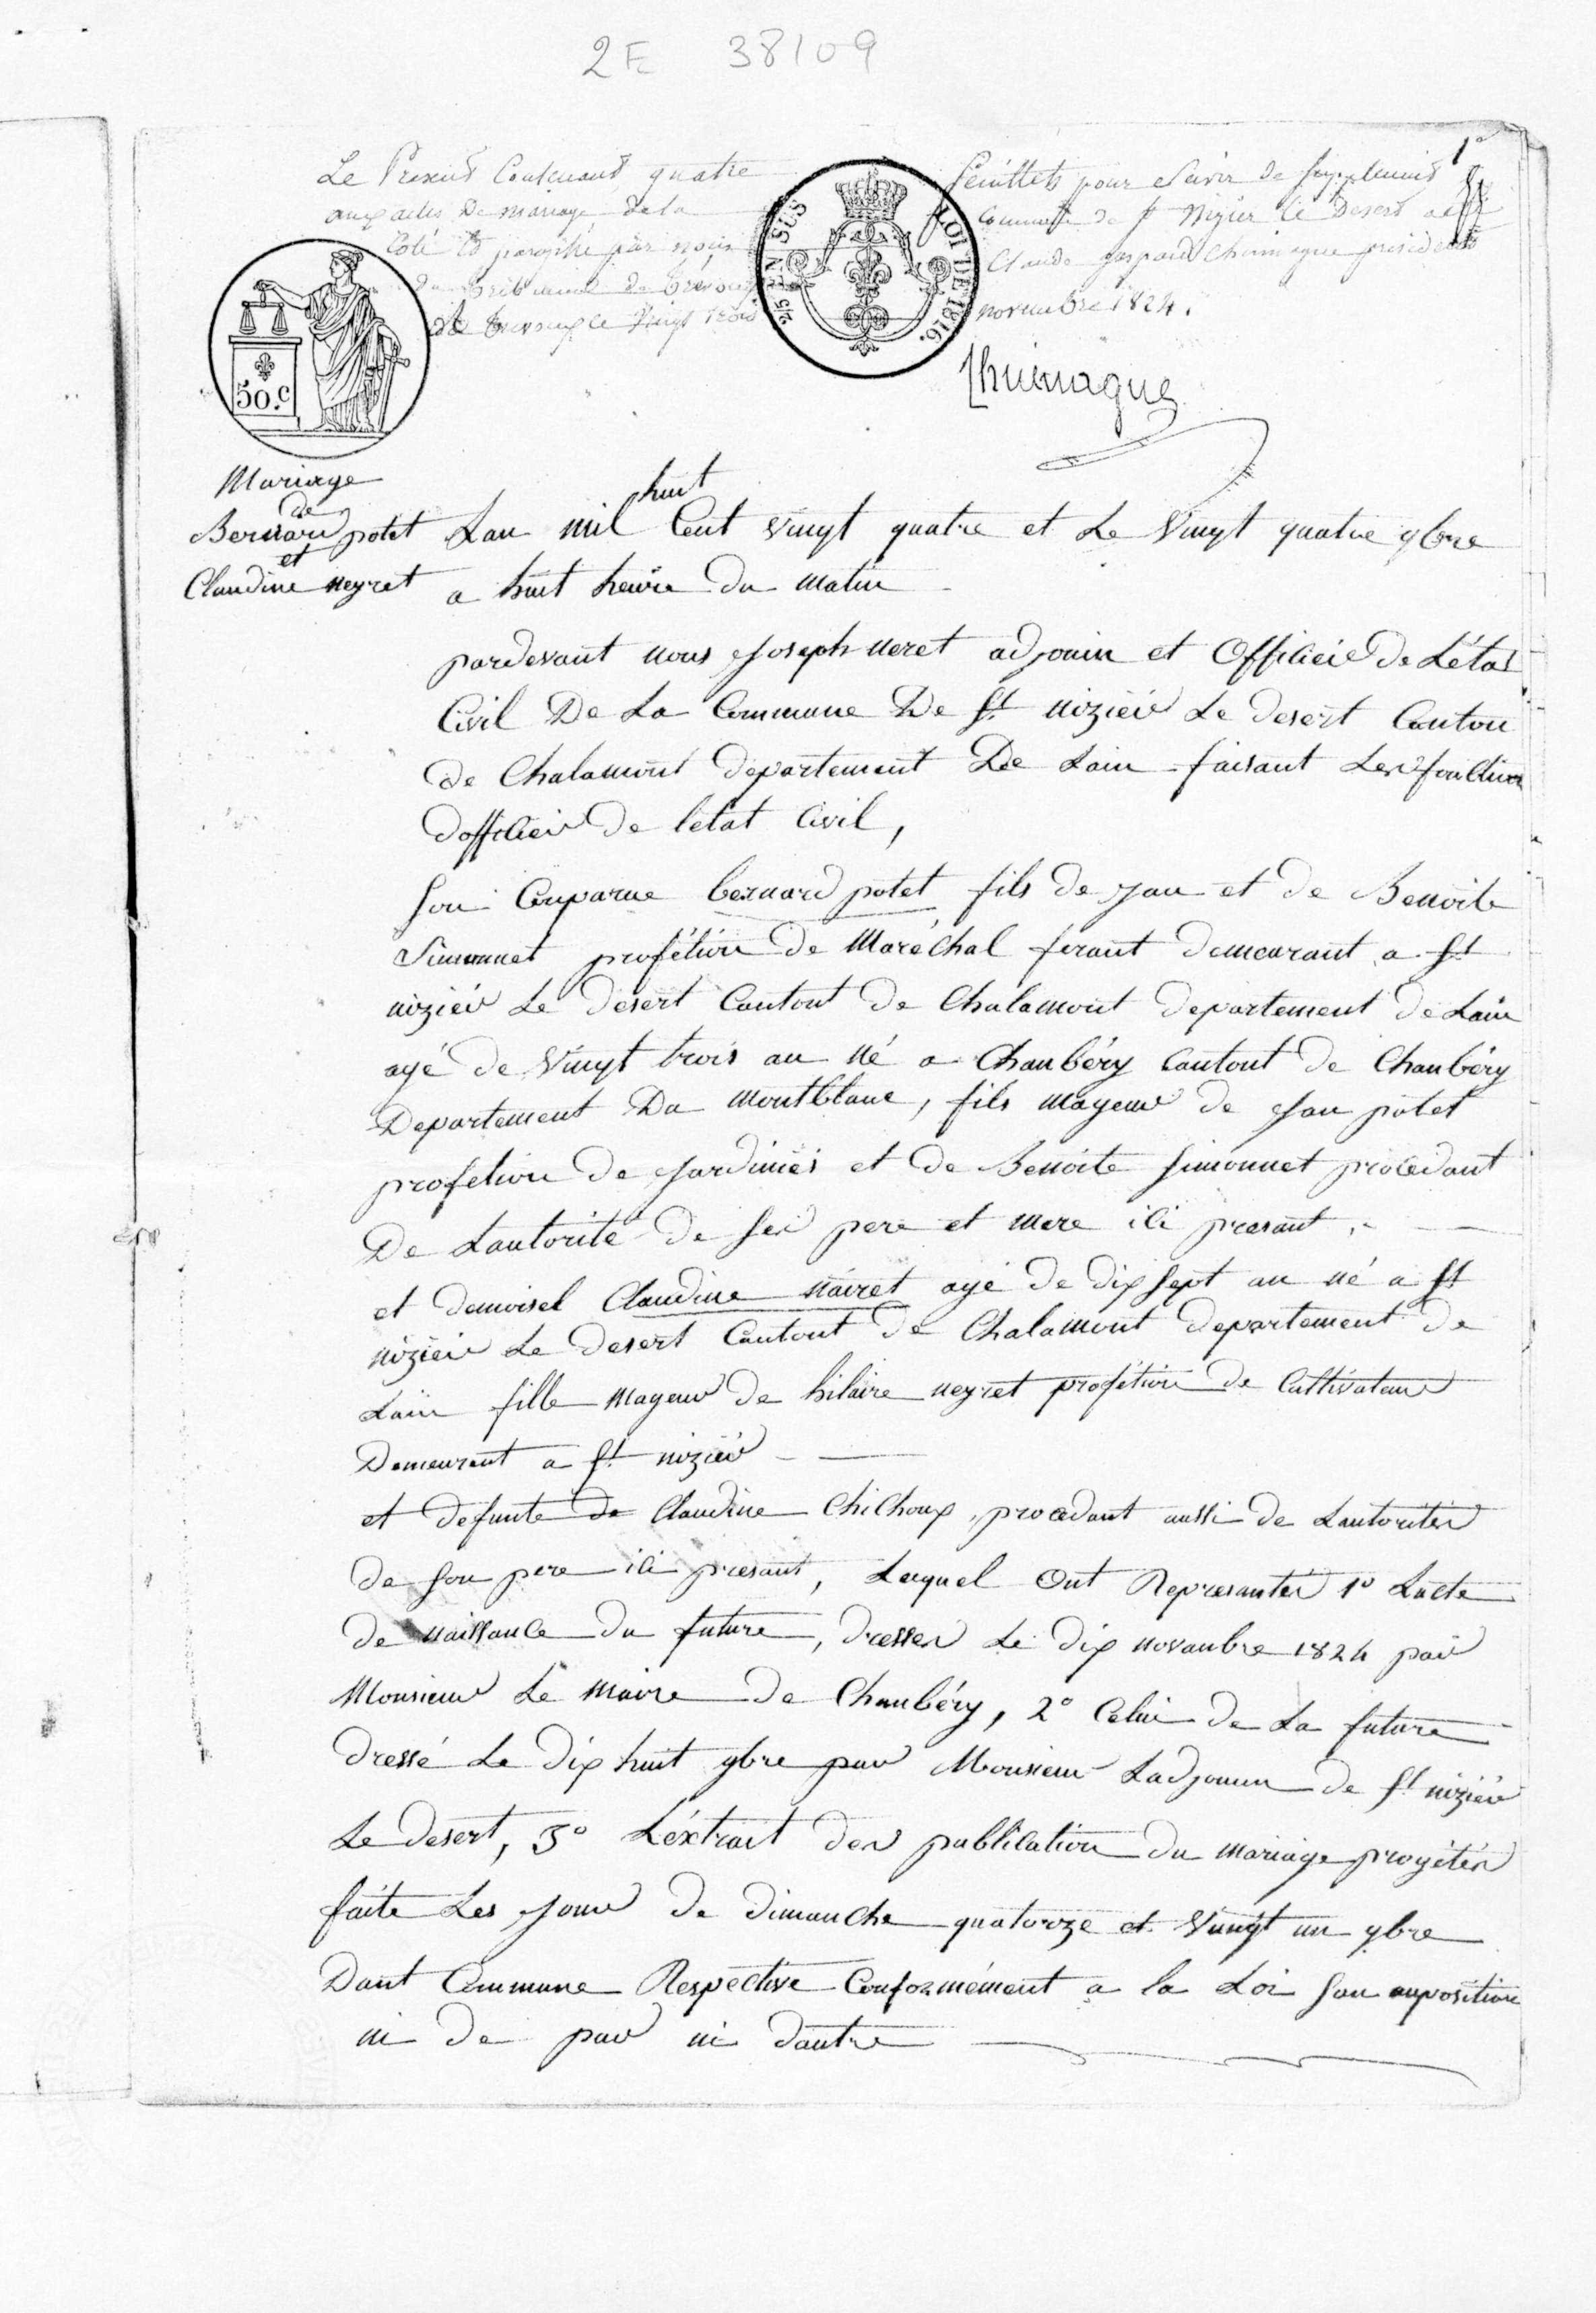 2E 38109
1º
Le Present Contenant quatre feuillets pour servir de supplement
aux actes de mariage de la Commune de St Nizier le Desert a été
Coté et paraphé par nous Claude Gaspard Chuinague president
du tribunal de trévoux
a trevoux le vingt trois novembre 1824.
25 EN SUS
LOI DE 1816.
50.c
Chuinague
Mariage
de
Bernard potet
et
Claudine neyret
Lan mil huit Cent vingt quatre et Le Vingt quatre 9bre
a huit heure du matin
pardevant nous Joseph neret adjouin et Officier De Létat
Civil De La Commune De St nizier Le desert Canton
de Chalamont departement De Lain faisant Les fonction
dofficier de létat Civil,
son Conparue bernard potet fils de Jan et de Benoite
Simonnet profétion de Maréchal ferant demeurant a St
nizier Le desert Cantont de Chalamont departement de Lain
agé de Vingt trois an né a Chanbéry Cantont de Chanbéry
Departement Du montblanc, fils mageur de Jan potet
profetion de Jardinier et de Benoite Simonnet procedant
De Lautorité de Ses pere et mere ici presant,
et demoisel Claudine nairet agé de dix sept an né a St
nizier Le desert Cantont de Chalamont departement de
Lain fille mageur de hilaire neyret profétion de Cultivateur
Demeurant a St nizier
et defunte de Claudine Chichoux, procedant aussi de Lautorités
de son pere ici presant, Lequel Ont Representér 1º Lacte
de naissance du future, dresser Le dix novanbre 1824 par
Monsieur Le maire de Chanbéry, 2º Celui de La future
dressé Le dix huit 9bre par Monsieur Ladjouin de St nizier
Le desert, 3º L'éxtrait des publication du mariage progétér
faite Les Jour de dimanche quatorze et Vingt un 9bre
Dant Commune Respective Conformément a la Loi san oposition
ni de par ni dautre